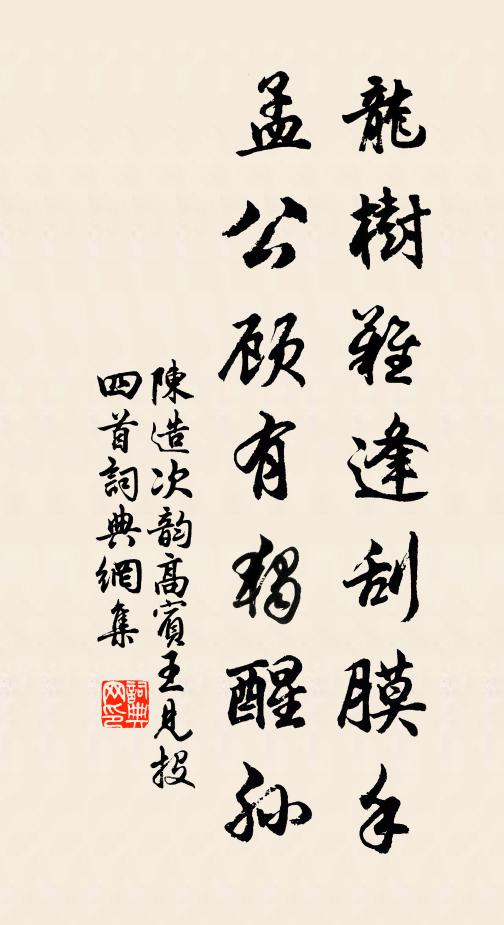 龍樹難逢刮膜手
孟公顾有獨醒孫
陳造次韵高賓王見投
四首詞典網集
詞典網印